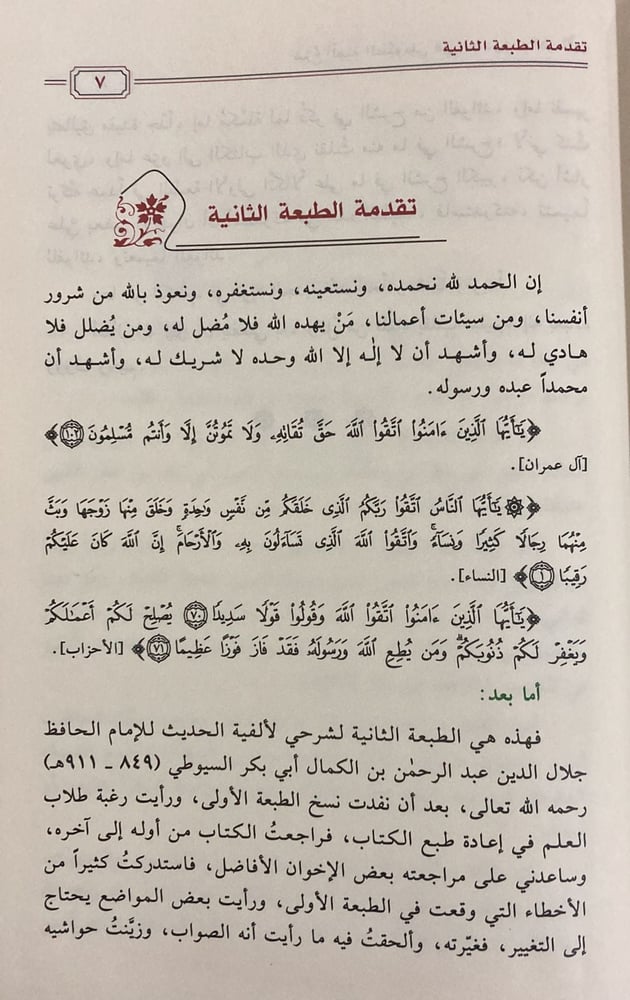 تقدمة الطبعة الثانية
٧
تقدمة الطبعة الثانية
إن الحمد لله نحمده، ونستعينه، ونستغفره، ونعوذ بالله من شرور
أنفسنا، ومن سيئات أعمالنا، مَنْ يهده الله فلا مُضل له، ومن يُضلل فلا
هادي له، وأشهد أن لا إلٰه إلا الله وحده لا شريك له، وأشهد أن
محمداً عبده ورسوله.
﴿يَٰٓأَيُّهَا ٱلَّذِينَ ءَامَنُوا۟ ٱتَّقُوا۟ ٱللَّهَ حَقَّ تُقَاتِهِۦ وَلَا تَمُوتُنَّ إِلَّا وَأَنتُم مُّسْلِمُونَ ١٠٢﴾
[آل عمران].
﴿۞ يَٰٓأَيُّهَا ٱلنَّاسُ ٱتَّقُوا۟ رَبَّكُمُ ٱلَّذِى خَلَقَكُم مِّن نَّفْسٍ وَٰحِدَةٍ وَخَلَقَ مِنْهَا زَوْجَهَا وَبَثَّ
مِنْهُمَا رِجَالًا كَثِيرًا وَنِسَآءً ۚ وَٱتَّقُوا۟ ٱللَّهَ ٱلَّذِى تَسَآءَلُونَ بِهِۦ وَٱلْأَرْحَامَ ۚ إِنَّ ٱللَّهَ كَانَ عَلَيْكُمْ
رَقِيبًا ١﴾ [النساء].
﴿يَٰٓأَيُّهَا ٱلَّذِينَ ءَامَنُوا۟ ٱتَّقُوا۟ ٱللَّهَ وَقُولُوا۟ قَوْلًا سَدِيدًا ٧٠ يُصْلِحْ لَكُمْ أَعْمَٰلَكُمْ
وَيَغْفِرْ لَكُمْ ذُنُوبَكُمْ ۗ وَمَن يُطِعِ ٱللَّهَ وَرَسُولَهُۥ فَقَدْ فَازَ فَوْزًا عَظِيمًا ٧١﴾ [الأحزاب].
أما بعد:
فهذه هي الطبعة الثانية لشرحي لألفية الحديث للإمام الحافظ
جلال الدين عبد الرحمٰن بن الكمال أبي بكر السيوطي (٨٤٩ ـ ٩١١هـ)
رحمه الله تعالى، بعد أن نفدت نسخ الطبعة الأولى، ورأيت رغبة طلاب
العلم في إعادة طبع الكتاب، فراجعتُ الكتاب من أوله إلى آخره،
وساعدني على مراجعته بعض الإخوان الأفاضل، فاستدركتُ كثيراً من
الأخطاء التي وقعت في الطبعة الأولى، ورأيت بعض المواضع يحتاج
إلى التغيير، فغيّرته، وألحقتُ فيه ما رأيت أنه الصواب، وزيَّنتُ حواشيه